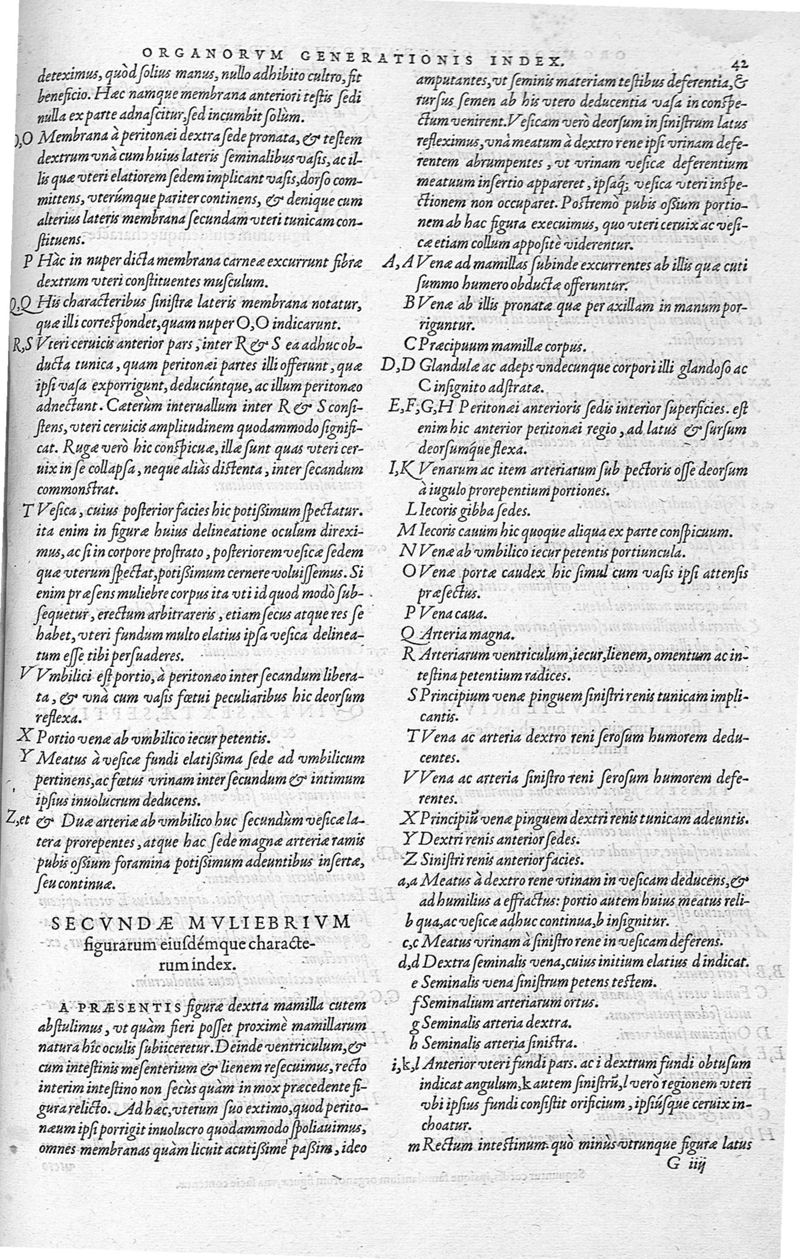 ORGANORVM GENERATIONIS INDEX. 42
deteximus, quòd solius manus, nullo adhibito cultro, fit
beneficio. Hæc namque membrana anteriori testis sedi
nulla ex parte adnascitur, sed incumbit solùm.
O,O Membrana à peritonæi dextra sede pronata, & testem
dextrum vnà cum huius lateris seminalibus vasis, ac il-
lis quæ vteri elatiorem sedem implicant vasis, dorso com-
mittens, vterúmque pariter continens, & denique cum
alterius lateris membrana secundam vteri tunicam con-
stituens.
P Hâc in nuper dicta membrana carneæ excurrunt fibræ
dextrum vteri constituentes musculum.
Q,Q His characteribus sinistræ lateris membrana notatur,
quæ illi correspondet, quam nuper O,O indicarunt.
R,S Vteri ceruicis anterior pars, inter R & S ea adhuc ob-
ducta tunica, quam peritonæi partes illi offerunt, quæ
ipsi vasa exporrigunt, deducúntque, ac illum peritonæo
adnectunt. Cæterùm interuallum inter R & S consi-
stens, vteri ceruicis amplitudinem quodammodo signifi-
cat. Rugæ verò hic conspicuæ, illæ sunt quas vteri cer-
uix in se collapsa, neque aliàs distenta, inter secandum
commonstrat.
T Vesica, cuius posterior facies hic potissimum spectatur.
ita enim in figuræ huius delineatione oculum direxi-
mus, ac si in corpore prostrato, posteriorem vesicæ sedem
quæ vterum spectat, potissimum cernere voluissemus. Si
enim præsens muliebre corpus ita vti id quod modò sub-
sequetur, erectum arbitrareris, etiam secus atque res se
habet, vteri fundum multo elatius ipsa vesica delinea-
tum esse tibi persuaderes.
V Vmbilici est portio, à peritonæo inter secandum libera-
ta, & vnà cum vasis fœtui peculiaribus hic deorsum
reflexa.
X Portio venæ ab vmbilico iecur petentis.
Y Meatus à vesicæ fundi elatissima sede ad vmbilicum
pertinens, ac fœtus vrinam inter secundum & intimum
ipsius inuolucrum deducens.
Z,et & Duæ arteriæ ab vmbilico huc secundùm vesicæ la-
tera prorepentes, atque hac sede magnæ arteriæ ramis
pubis ossium foramina potissimum adeuntibus insertæ,
seu continuæ.
SECVNDÆ MVLIEBRIVM
figurarum eiusdémque characte-
rum index.
A PRÆSENTIS figuræ dextra mamilla cutem
abstulimus, vt quàm fieri posset proximè mamillarum
natura hîc oculis subiiceretur. Deinde ventriculum, &
cum intestinis mesenterium & lienem resecuimus, recto
interim intestino non secùs quàm in mox præcedente fi-
gura relicto. Ad hæc, vterum suo extimo, quod perito-
næum ipsi porrigit inuolucro quodammodo spoliauimus,
omnes membranas quàm licuit acutissimè passim, ideo
amputantes, vt seminis materiam testibus deferentia, &
rursus semen ab his vtero deducentia vasa in conspe-
ctum venirent. Vesicam verò deorsum in sinistrum latus
reflexímus, vnà meatum à dextro rene ipsi vrinam defe-
rentem abrumpentes, vt vrinam vesicæ deferentium
meatuum insertio appareret, ipsaq; vesica vteri inspe-
ctionem non occuparet. Postremò pubis ossium portio-
nem ab hac figura execuimus, quo vteri ceruix ac vesi-
cæ etiam collum appositè viderentur.
A, A Venæ ad mamillas subinde excurrentes ab illis quæ cuti
summo humero obductæ offeruntur.
B Venæ ab illis pronatæ quæ per axillam in manum por-
riguntur.
C Præcipuum mamillæ corpus.
D,D Glandulæ ac adeps vndecunque corpori illi glandoso ac
C insignito adstratæ.
E,F,G,H Peritonæi anterioris sedis interior superficies. est
enim hic anterior peritonæi regio, ad latus & sursum
deorsumq́ue flexa.
I,K Venarum ac item arteriarum sub pectoris osse deorsum
à iugulo prorepentium portiones.
L Iecoris gibba sedes.
M Iecoris cauum hic quoque aliqua ex parte conspicuum.
N Venæ ab vmbilico iecur petentis portiuncula.
O Venæ portæ caudex hic simul cum vasis ipsi attensis
præsectus.
P Vena caua.
Q Arteria magna.
R Arteriarum ventriculum, iecur, lienem, omentum ac in-
testina petentium radices.
S Principium venæ pinguem sinistri renis tunicam impli-
cantis.
T Vena ac arteria dextro reni serosum humorem dedu-
centes.
V Vena ac arteria sinistro reni serosum humorem defe-
rentes.
X Principiũ venæ pinguem dextri renis tunicam adeuntis.
Y Dextri renis anterior sedes.
Z Sinistri renis anterior facies.
a,a Meatus à dextro rene vrinam in vesicam deducens, &
ad humilius a effractus: portio autem huius meatus reli-
b qua, ac vesicæ adhuc continua, b insignitur.
c,c Meatus vrinam à sinistro rene in vesicam deferens.
d,d Dextra seminalis vena, cuius initium elatius d indicat.
e Seminalis vena sinistrum petens testem.
f Seminalium arteriarum ortus.
g Seminalis arteria dextra.
h Seminalis arteria sinistra.
i,k,l Anterior vteri fundi pars. ac i dextrum fundi obtusum
indicat angulum, k autem sinistrũ, l verò regionem vteri
vbi ipsius fundi consistit orificium, ipsiúsque ceruix in-
choatur.
m Rectum intestinum. quò minùs vtrunque figuræ latus
G iiij